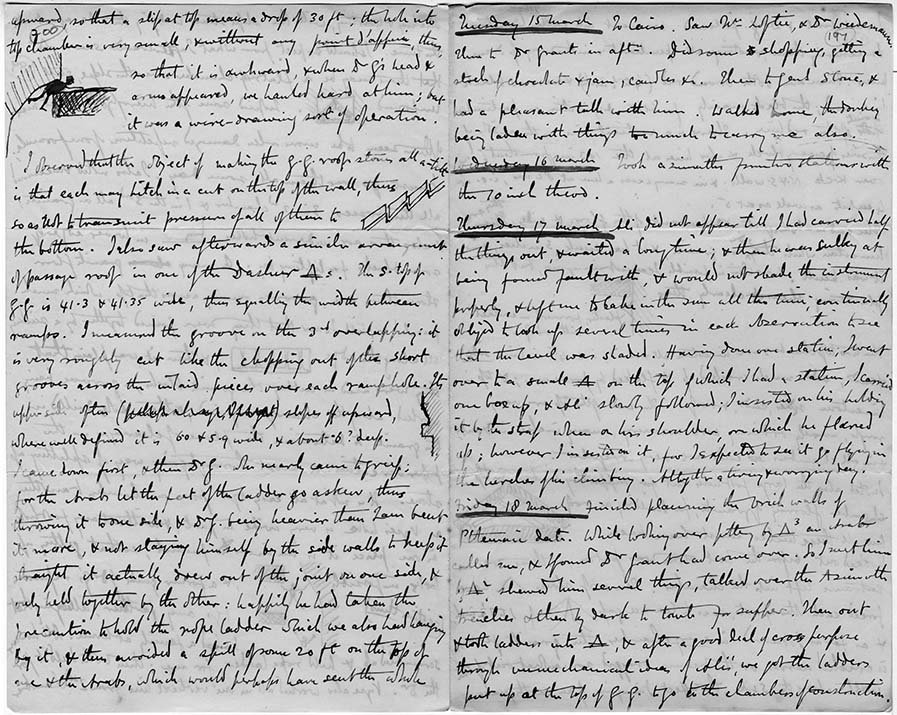 upward, so that a slip at top means a drop of 30 ft; the hole into
200
top chamber is very small, & without any point d'appui, thus,
so that it is awkward, & when Dr G's head &
arms appeared, we hauled hard at him; but
it was a wire-drawing sort of operation.
I observed that the object of making the g-g. roof stones all
is that each may hitch in a cut on the top of the wall, thus
so as not to transmit pressure of all of them to
the bottom. I also saw afterwards a similar arrangement
of passage roof in one of the Dashur Δs. The S. top of
g-g is 41.3 & 41.35 wide, thus equalling the width between
ramps. I measured the groove on the 3rd overlapping: it
is very roughly cut like the chopping out of the short
grooves across the inlaid pieces over each ramp hole. The
upper side of this slopes off upward,
where well defined it is 6.0 & 5.9 wide, & about .6? deep.
I came down first, & then Dr G. He nearly came to grief;
for the Arabs let the feet of the ladder go askew, thus
throwing it to one side, & Dr G. being heavier than I am bent
it more, & not staying himself by the side walls to keep it
straight it actually drew out of the joint on one side, &
only held together by the other: happily he had taken the
precaution to hold the rope ladder which we also had hanging
by it, & thus avoided a spill of some 20 ft on the top of
me & the Arabs, which would perhaps have sent the whole
Tuesday 15 March To Cairo. Saw Mr Loftie, & Dr Wiedemann
197
Then to Dr Grant in aft. Did some shopping, getting a
stock of chocolate & jam, candles &c. Then to Genl Stone, &
had a pleasant talk with him. Walked home, the donkey
being laden with things too much to carry me also.
Wednesday 16 March Took azimuths from two stations with
the 10 inch theod.
Thursday 17 March Ali did not appear till I had carried half
the things out, & waited a long time; & then he was sulky at
being found fault with, & would not shade the instrument
properly, & left me to bake in the sun all the time, continually
obliged to look up several times in each observation to see
that the level was shaded. Having done one station, I went
over to a small Δ on the top of which I had a station, I carried
one box up, & Ali slowly followed; I insisted on his holding
it by the strap when on his shoulder, on which he flared
up; however I insisted on it, for I expected to see it go flying in
the lurches of his climbing. Altogether a tiring & worrying day
Friday 18 March finished planning the brick walls of
Ptolemaic date. While looking over pottery by Δ3 an Arab
called me, & I found Dr Grant had come over. So I met him
shewed him several things, talked over the Azimuth
trenches & then by dark to tomb for supper. Then out
& took ladders into Δ, & after a good deal of cross purpose
through unmechanical ideas of Ali's, we got the ladders
put up at the top of g-g. to go to the chambers of construction.